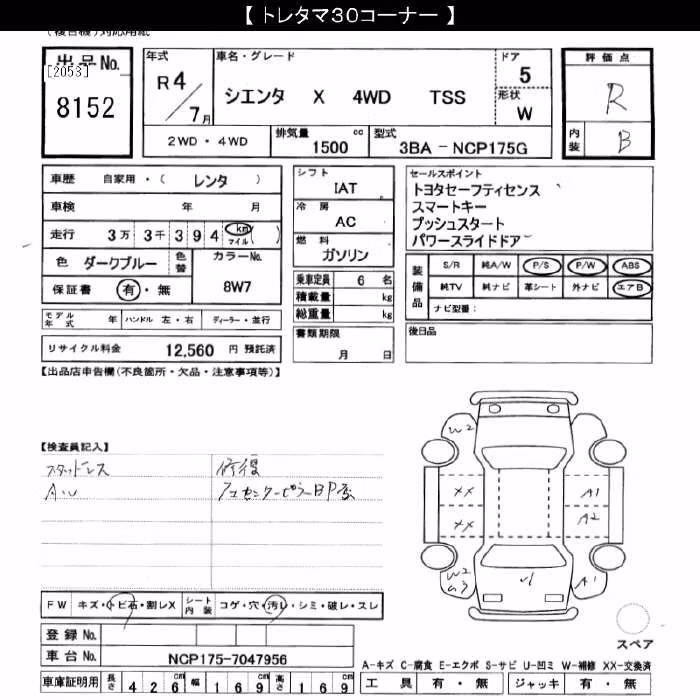 【 トレタマ30コーナー 】
(複合機)対応用紙
出品No.
[2053]
8152
年式
R4/7月
車名・グレード
シエンタ X 4WD TSS
ドア
5
形状
W
評価点
R
内装
B
2WD ・ 4WD
排気量 1500 cc
型式 3BA - NCP175G
車歴 自家用・( レンタ )
車検 年 月
走行 3万 3千 3 9 4 km マイル ( )
色 ダークブルー 色替
カラーNo.
8W7
保証書 有・無
モデル年式 年 ハンドル 左・右 ディーラー・並行
リサイクル料金 12,560 円 預託済
シフト
IAT
冷房
AC
燃料
ガソリン
乗車定員 6 名
積載量 kg
総重量 kg
書類期限
月 日
セールスポイント
トヨタセーフティセンス
スマートキー
プッシュスタート
パワースライドドア
装備品
S/R 純A/W P/S P/W ABS
純TV 純ナビ 革シート 外ナビ エアB
ナビ型番:
後日品
【出品店申告欄(不良箇所・欠品・注意事項等)】
【検査員記入】
スタッドレス
A・U
修復
フロセンターピラーBP交
W2
XX
XX
A1
A2
W2
U3
A1
スペア
FW キズ・トビ石・割レX
シート内装 コゲ・穴・汚レ・シミ・破レ・スレ
登録No.
車台No. NCP175-7047956
車庫証明用 長さ 426cm 幅 169cm 高さ 169cm
A-キズ C-腐食 E-エクボ S-サビ U-凹ミ W-補修 XX-交換済
工具 有・無 ジャッキ 有・無